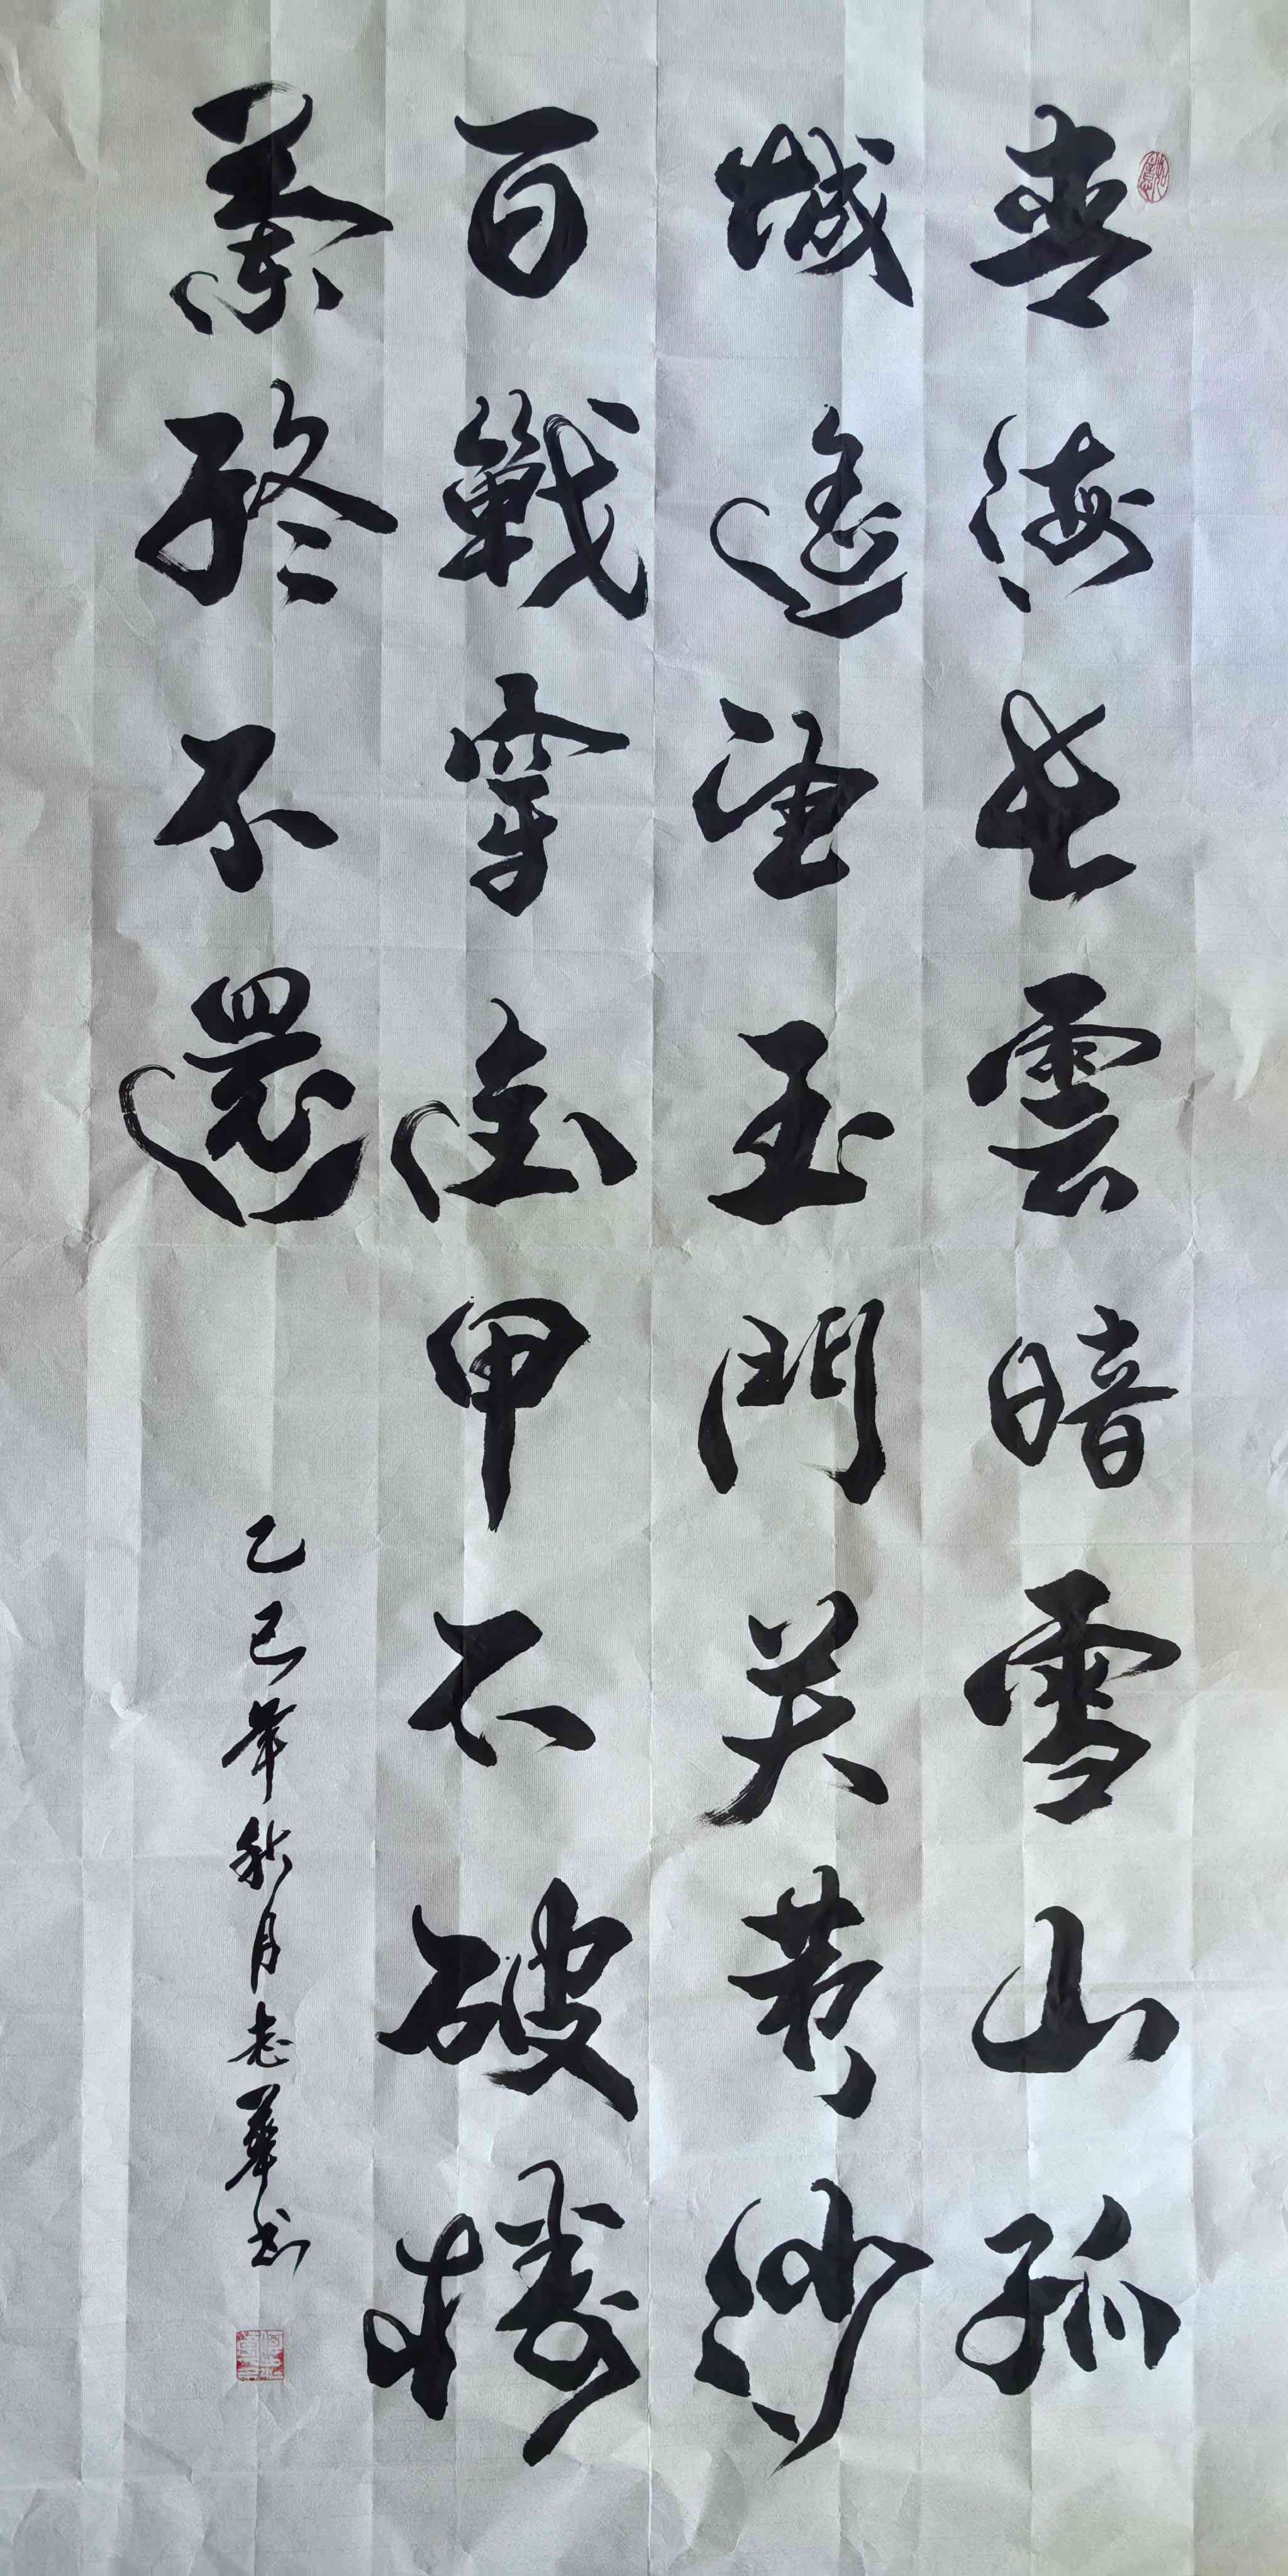 青海長雲暗雪山孤
城遙望玉門关黄沙
百戰穿金甲不破樓
蘭終不還
乙巳年秋月志華书